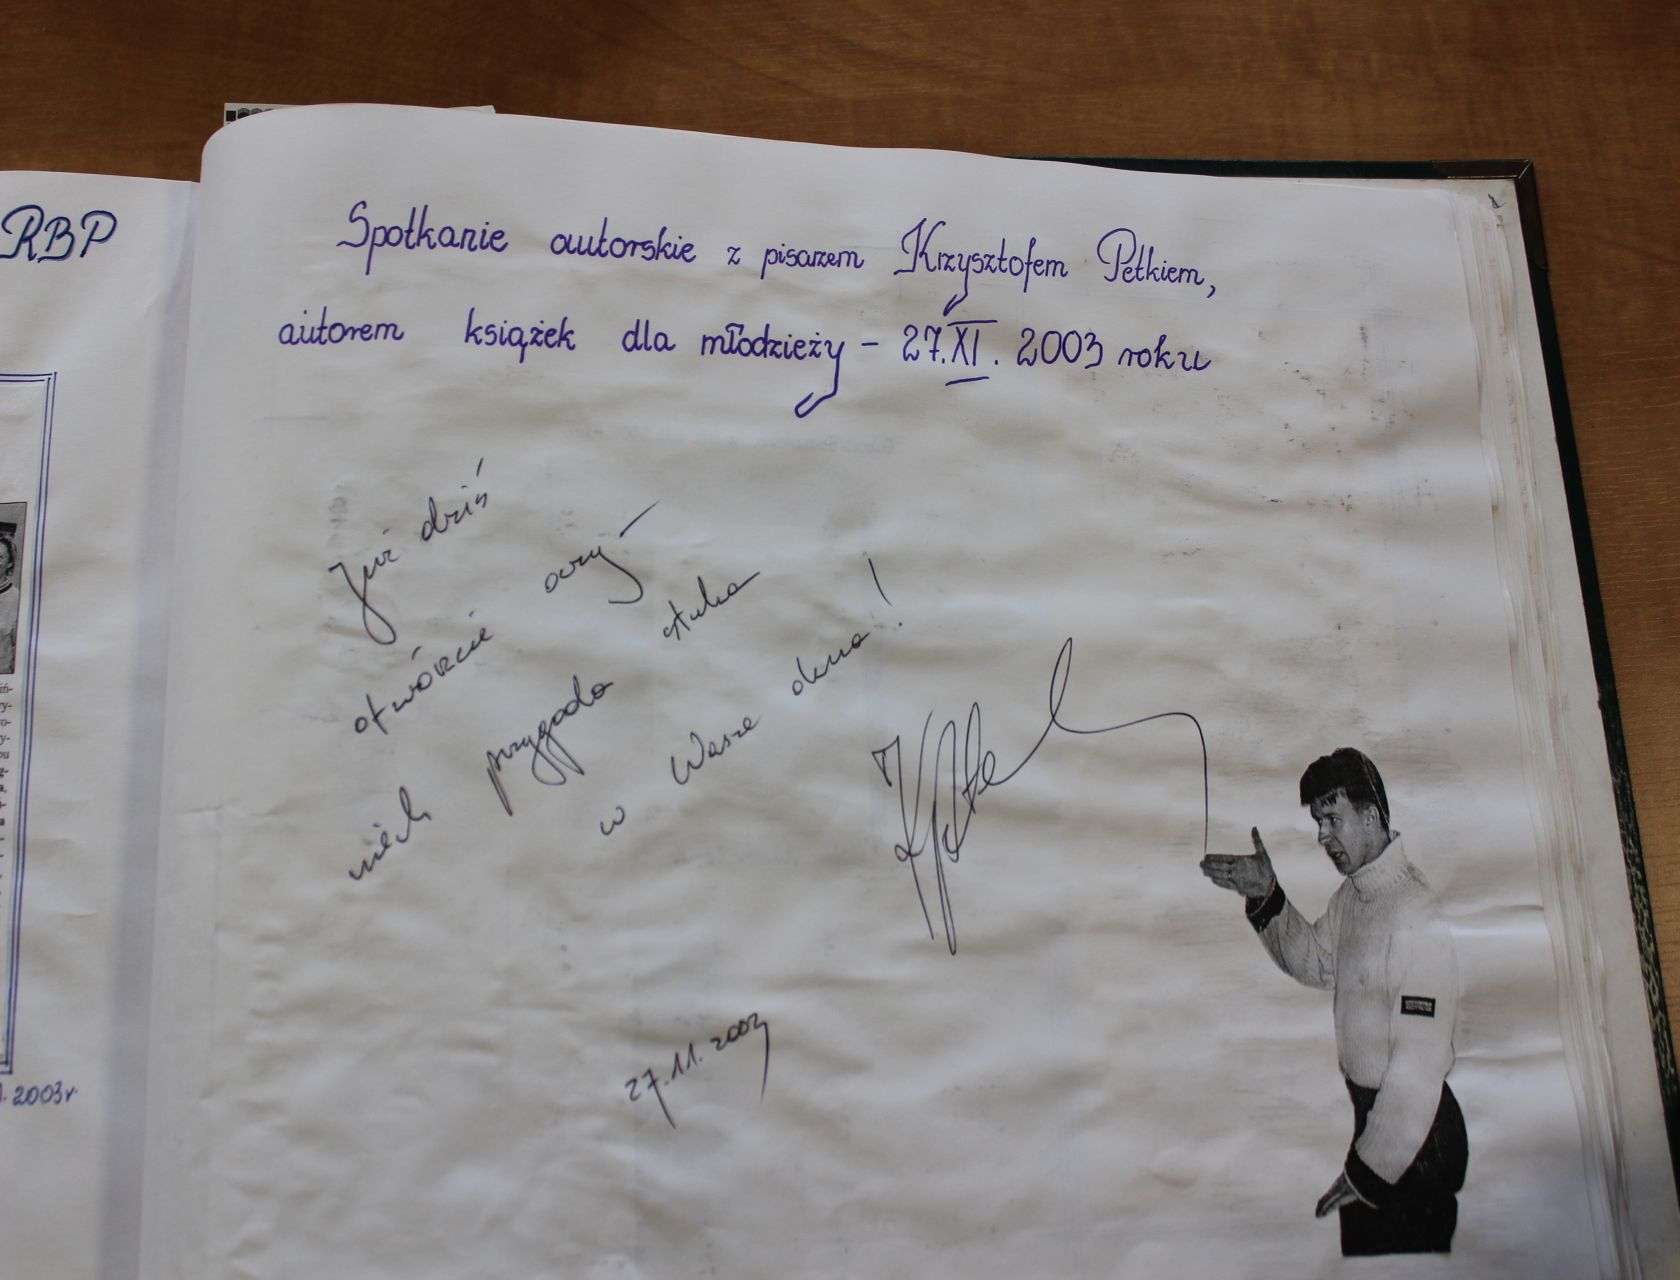 RBP
1. 2003r.
Spotkanie autorskie z pisarzem Krzysztofem Petkiem,
autorem książek dla młodzieży - 27.XI. 2003 roku
Już dziś
otwórzcie oczy -
niech przygoda stuka
w Wasze okna!
27.11.2003